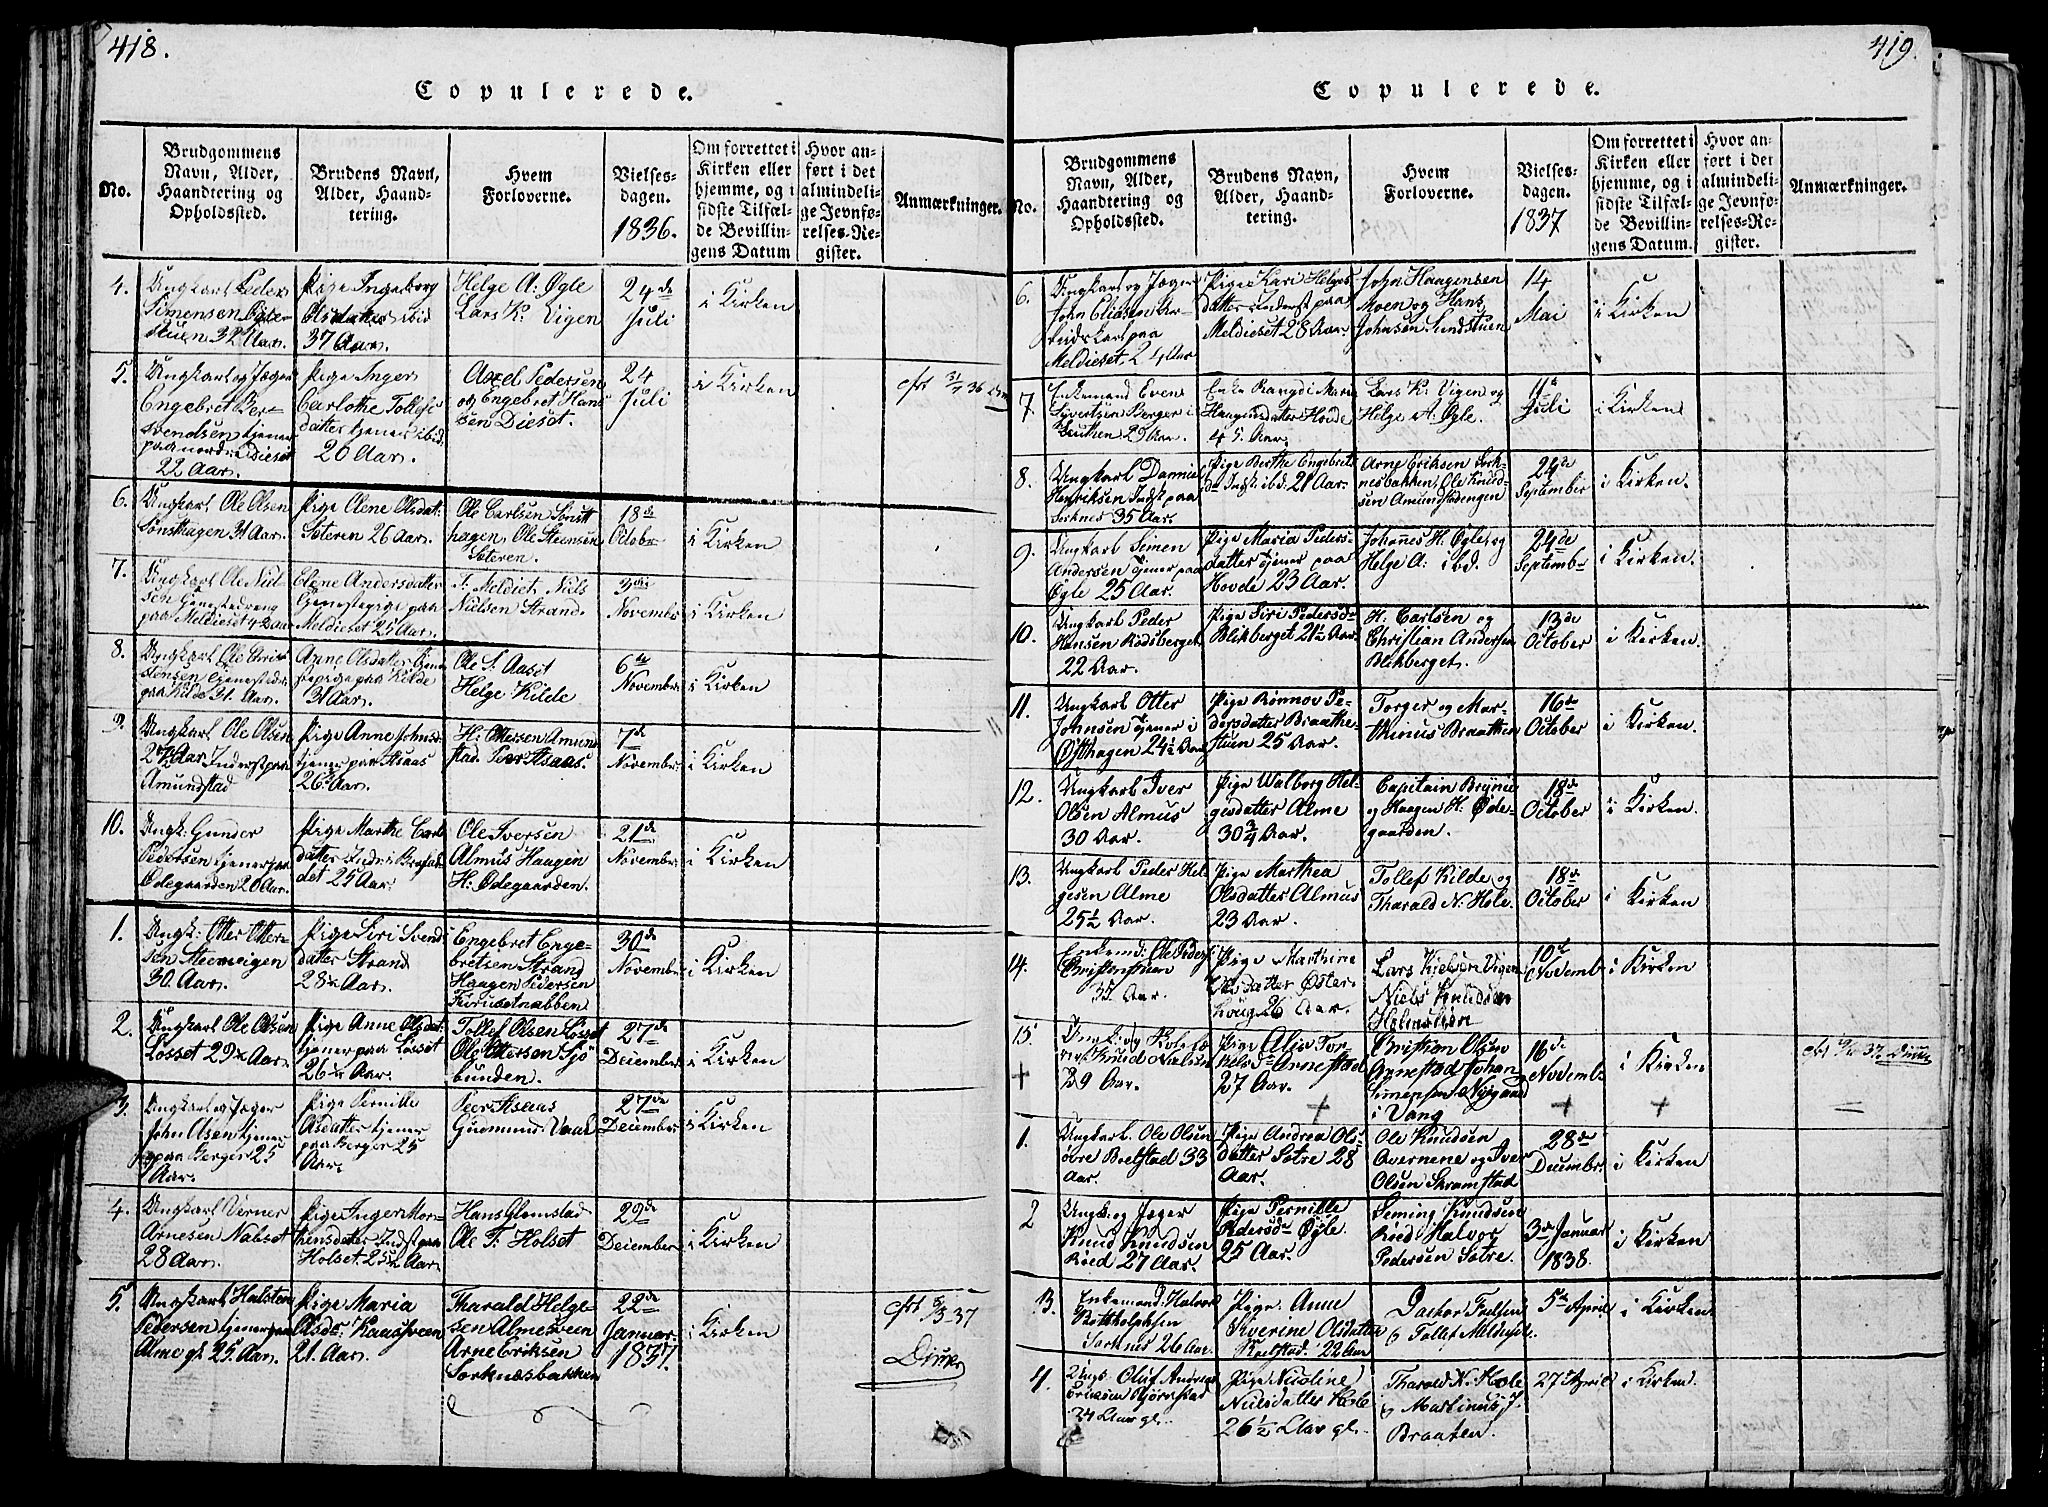 418.
Copulerede.
No.
Brudgommens
Navn, Alder,
Haandtering og
Opholdssted.
Brudens Navn,
Alder, Haand-
tering.
Hvem
Forloverne.
Vielses-
dagen.
1836.
Om forrettet i
Kirken eller
hjemme, og i
sidste Tilfæl-
de Bevillin-
gens Datum
Hvor an-
ført i det
almindeli-
ge Jevnfø-
relses-Re-
gister.
Anmærkninger.
4.
Ungkarl Peder
Simensen
32 Aar.
Pige Ingeborg
Olsdatter ibid
37 Aar.
Helge A: Øgle
Lars K: Vigen
24de
Juli
i Kirken
5.
Ungkarl og Jæger
Engebret Ber-
svendsen tjener
paa nordre Dieset
22 Aar.
Pige Inger
Carlothe Tollefs
datter tjener ibid.
20 Aar.
Axel Pedersen
og Engebret Han
sen Dieset.
24
Juli
i Kirken
6.
Ungkarl Ole Olsen
Sønsthagen 31 Aar.
Pige Olene Olsdat:
Sæteren 26 Aar.
Ole Carlsen Sønst
hagen, Ole Steensen
Sæteren.
18de
Octobr
i Kirken
7.
Ungkarl Ole Niel
sen Tjenestedreng
paa Meldieset 42 Aar
Elene Andersdatter
Tjenestepige paa
Meldieset 25 Aar.
S: Meldiet Niels
Nielsen Strand.
3die
November
i Kirken
8.
Ungkarl Ole Chri
stensen tjenestedr:
paa Kilde 31. Aar.
Anne Olsdatter tjene
stepige paa Kilde
31 Aar.
Ole S: Aaset
Helge Kilde
6te
November
i Kirken
9.
Ungkarl Ole Olsen
27½ Aar Inderst paa
Amundstad
Pige Anne Johnsd:
tjener paa Asaas
26 Aar.
H: Ottersen Amund
stad. Peer Asaas.
7de
Novembr:
i Kirken
10.
Ungk: Gunder
Pedersen tjener paa
Ødegaarden 20 Aar.
Pige Marthe Carls
datter
det 25 Aar.
Ole Iversen
Almus Haagen
H: Ødegaarden.
21de
November
i Kirken
1.
Ungk: Otter Otter-
sen Steenvigen
30 Aar.
Pige Siri Svend
datter Strand
28 Aar.
Engebret Enge-
bretsen Strand
Haagen Pedersen
Furusetnæbben
30de
Novembr
i Kirken
2.
Ungkarl Ole Olsen
Losset 29 Aar.
Pige Anne Olsdat:
tjener paa Losset
26 Aar.
Tollef Olsen Losset
Ole Ottersen Sjø
bunden.
27de
Deiember
i Kirken
3.
Ungkarl og Jæger
John Olsen tjener
paa Berger 25
Aar.
Pige Pernille
Olsdatter tjener
paa Berger 25
Aar.
Peer Asaas
Gudmund
27de
Deiember
i Kirken
4.
Ungkarl Verner
Arnesen Nabset
28 Aar.
Pige Inger Mor-
tensdatter Indst paa
Holset 25½ Aar
Hans Glomstad
Ole T: Holset
29de
Deiember
i Kirken
5.
Ungkarl Halsten
Pedersen tjener paa
Alme gl 25. Aar.
Pige Maria
Olsdr: Kaassveen
21. Aar.
Tharald Helge-
sen Almesveen
Arne Eriksen
Sorknæsbakken
22de
Januar
1837.
i Kirken
419.
Copulerede.
No.
Brudgommens
Navn, Alder,
Haandtering og
Opholdssted.
Brudens Navn,
Alder, Haand-
tering.
Hvem
Forloverne.
Vielses-
dagen.
1837
Om forrettet i
Kirken eller
hjemme, og i
sidste Tilfæl-
de Bevillin-
gens Datum.
Hvor an-
ført i det
almindeli-
ge Jevnfø-
relses-Re-
gister.
Anmærkninger.
6.
Ungkarl og Jæger
John Eliasen Ar-
beidskarl paa
Meldieset. 24 Aar
Pige Kari Helges
datter Inderst paa
Meldieset 28 Aar.
John Haagensen
Moen og Hans
Johnsen Sundstuen
14
Mai
i Kirken
7.
Enkemand Even
Syvertsen Berger i
29 Aar.
Enke Rangdi Marie
Haagensdatter Hovde
45. Aar.
Lars K: Vigen og
Helge A. Øgle.
11te
Juli
i Kirken
8.
Ungkarl Daniel
Henriksen Indst paa
Sorknes 35 Aar.
Pige Berthe Engebrets
dr Indst: ibd: 21 Aar.
Arne Eriksen Sork-
nesbakken, Ole Knud-
sen Amundstadengen
24de
September
i Kirken.
9.
Ungkarl Simen
Andersen tjener paa
Øgle 25 Aar.
Pige Maria Peders-
datter tjener paa
Hovde 23 Aar.
Johanes H. Øgle, og
Helge A: ibd.
24de
Septembr
i Kirken.
10.
Ungkarl Peder
Hansen Rødsberget
22 Aar.
Pige Siri Pedersd:
Blikberget 21½ Aar.
H. Carlsen og
Christian Andersen
Blikberget.
13de
October
i Kirken.
11.
Ungkarl Otter
Johnsen tjener i
Østhagen 24½ Aar
Pige Rønnov Pe-
dersdatter Braathe-
stuen 25 Aar.
Torger og Mar-
thinus Braathen
16de
October
i Kirken.
12.
Ungkarl Iver
Olsen Almus
30 Aar.
Pige Walborg Hel-
gesdatter Alme
30¾ Aar.
Capitain Brynie
og Haagen H: Øde-
gaarden.
18de
October
i Kirken.
13.
Ungkarl Peder Hel
gesen Alme
25½ Aar.
Pige Marthea
Olsdatter Almus
23 Aar.
Tollef Kilde og
Tharald N: Hole.
18de
October
i Kirken
14.
Enkemd: Ole Peders:
35. Aar.
Pige Marthine
Olsdatter Øster-
houg 26 Aar.
Lars Kjelsen Vigen
Niels Knudsen
10de
Novemb
i Kirken
15.
Knud
29 Aar.
Pige Alis Tor-
kelsdr Arnestad
27 Aar.
Christian Olsen
Arnestad Johan
Simensen Nygaard
i Vang
16de
Novemb
i Kirken
1.
Ungkarl: Ole Olsen
øvre Bretstad 33
Aar.
Pige Andrea Ols
datter Sætre 28
Aar.
Ole Knudsen
Overnene og Iver
Olsen Skramstad
28de
Deiembr
i Kirken
2
Ungk: og Jæger
Knud Knudsen
Røed 27 Aar.
Pige Pernille
Pedersdr Øgle.
25 Aar.
Seming Knudsen
Røed, Halvor
Pedersen Sætre.
3de Januar
1838.
i Kirken
3.
Enkemand: Halvor
Botholphsen
Sorknes 26 Aar.
Pige: Anne
Severine Olsdatter
22 Aar
og Tollef Meldieset.
5te April
i Kirken
4.
Ungk: Oluf Andreas
Eriksen Bjørnstad
24 Aar gl.
Pige Nicoline
Nielsdatter Hole
26½ Aar gl.
Tharald N. Hole
og Martinus J.
Braaten.
27 April
i Kirken.